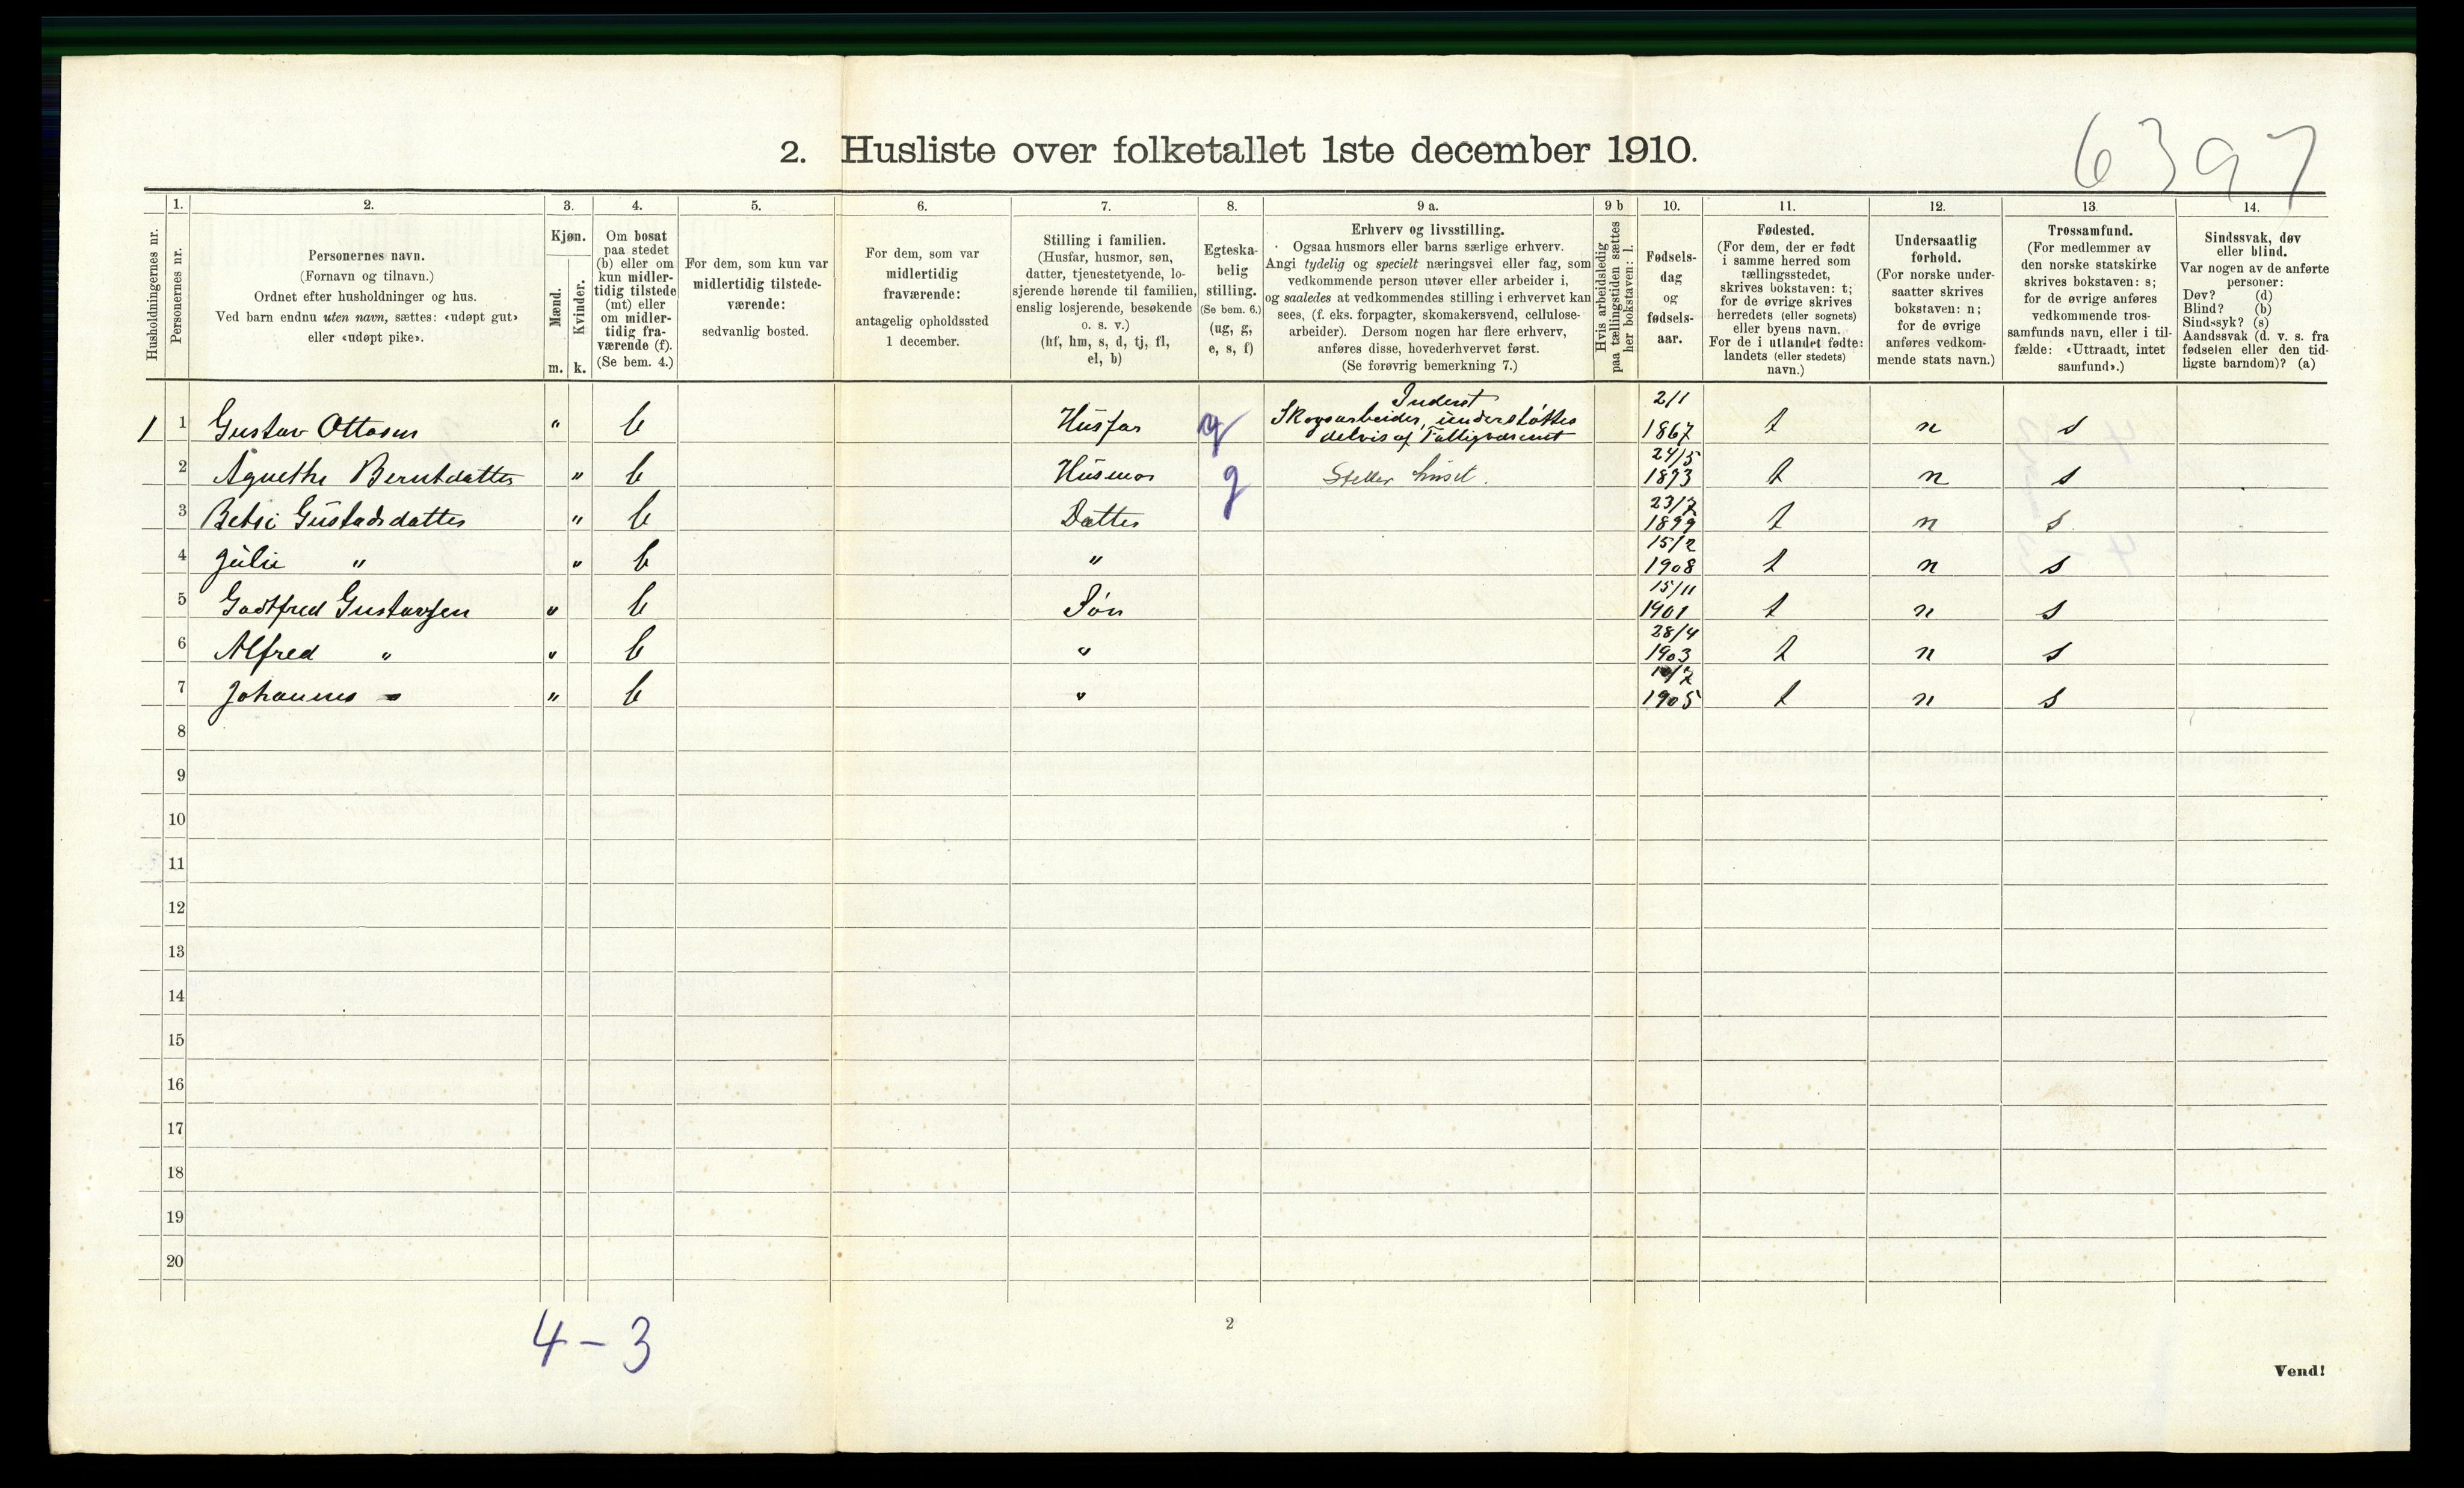 6397
2. Husliste over folketallet 1ste december 1910.
Husholdningernes nr.
1.
Personernes nr.
2.
Personernes navn.
(Fornavn og tilnavn.)
Ordnet efter husholdninger og hus.
Ved barn endnu uten navn, sættes: «udøpt gut»
eller «udøpt pike».
3.
Kjøn.
Mænd.
Kvinder.
m. k.
4.
Om bosat
paa stedet
(b) eller om
kun midler-
tidig tilstede
(mt) eller
om midler-
tidig fra-
værende (f).
(Se bem. 4.)
5.
For dem, som kun var
midlertidig tilstede-
værende:
sedvanlig bosted.
6.
For dem, som var
midlertidig
fraværende:
antagelig opholdssted
1 december.
7.
Stilling i familien.
(Husfar, husmor, søn,
datter, tjenestetyende, lo-
sjerende hørende til familien,
enslig losjerende, besøkende
o. s. v.)
(hf, hm, s, d, tj, fl,
el, b)
8.
Egteska-
belig
stilling.
(Se bem. 6.)
(ug, g,
e, s, f)
9 a.
Erhverv og livsstilling.
Ogsaa husmors eller barns særlige erhverv.
Angi tydelig og specielt næringsvei eller fag, som
vedkommende person utøver eller arbeider i,
og saaledes at vedkommendes stilling i erhvervet kan
sees, (f. eks. forpagter, skomakersvend, cellulose-
arbeider). Dersom nogen har flere erhverv,
anføres disse, hovederhvervet først.
(Se forøvrig bemerkning 7.)
9 b
Hvis arbeidsledig
paa tællingstiden sættes
her bokstaven: l.
10.
Fødsels-
dag
og
fødsels-
aar.
11.
Fødested.
(For dem, der er født
i samme herred som
tællingsstedet,
skrives bokstaven: t;
for de øvrige skrives
herredets (eller sognets)
eller byens navn.
For de i utlandet fødte:
landets (eller stedets)
navn.)
12.
Undersaatlig
forhold.
(For norske under-
saatter skrives
bokstaven: n;
for de øvrige
anføres vedkom-
mende stats navn.)
13.
Trossamfund.
(For medlemmer av
den norske statskirke
skrives bokstaven: s;
for de øvrige anføres
vedkommende tros-
samfunds navn, eller i til-
fælde: «Uttraadt, intet
samfund».)
14.
Sindssvak, døv
eller blind.
Var nogen av de anførte
personer:
Døv? (d)
Blind? (b)
Sindssyk? (s)
Aandssvak (d. v. s. fra
fødselen eller den tid-
ligste barndom)? (a)
Inderst 2/1
1 1 Gustav Ottosen " b Husfar g Skogsarbeider, understøttes 1867 t n s
delvis af Fattigvæsenet
24/5
2 Agnethe Berntdatter " b Husmor g Steller huset. 1873 t n s
23/7
3 Betsi Gustadsdatter " b Datter 1899 t n s
15/2
4 Julie " " b " 1908 t n s
15/11
5 Godtfred Gustavsen " b Søn 1901 t n s
28/4
6 Alfred " " b " 1903 t n s
7 Johannes " " b " 1905 t n s
8
9
10
11
12
13
14
15
16
17
18
19
20
4 - 3
2
Vend!